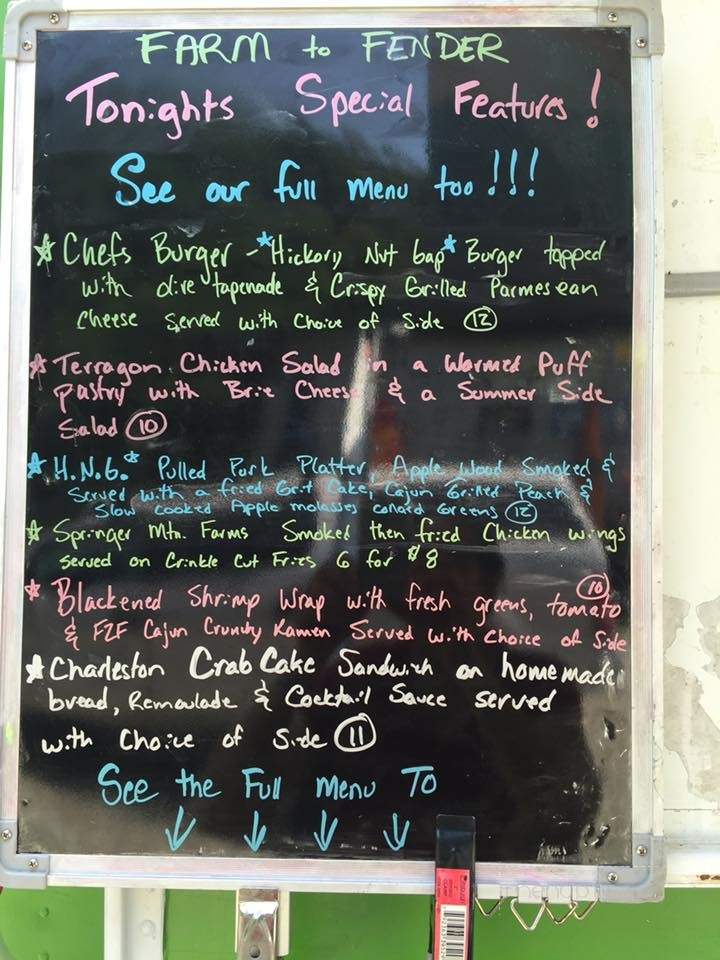 FARM to FENDER
Tonights Special Features!
See our full menu too!!!
Chefs Burger - *Hickory Nut Gap* Burger topped
with olive tapenade & Crispy Grilled Parmesean
Cheese Served with Choice of Side 12
Terragon Chicken Salad in a Warmed Puff
pastry with Brie Cheese & a Summer Side
Salad 10
H.N.G.* Pulled Pork Platter, Apple Wood Smoked &
Served with a fried Grit Cake, Cajun Grilled Peach &
Slow cooked Apple molasses Collard Greens 12
Springer Mtn. Farms Smoked then fried Chicken wings
served on Crinkle Cut Fries 6 for $8
Blackened Shrimp Wrap with fresh greens, tomato 10
& F2F Cajun Crunchy Ramen Served with Choice of Side
Charleston Crab Cake Sandwich on homemade
bread, Remoulade & Cocktail Sauce served
with Choice of Side 11
See the Full Menu To